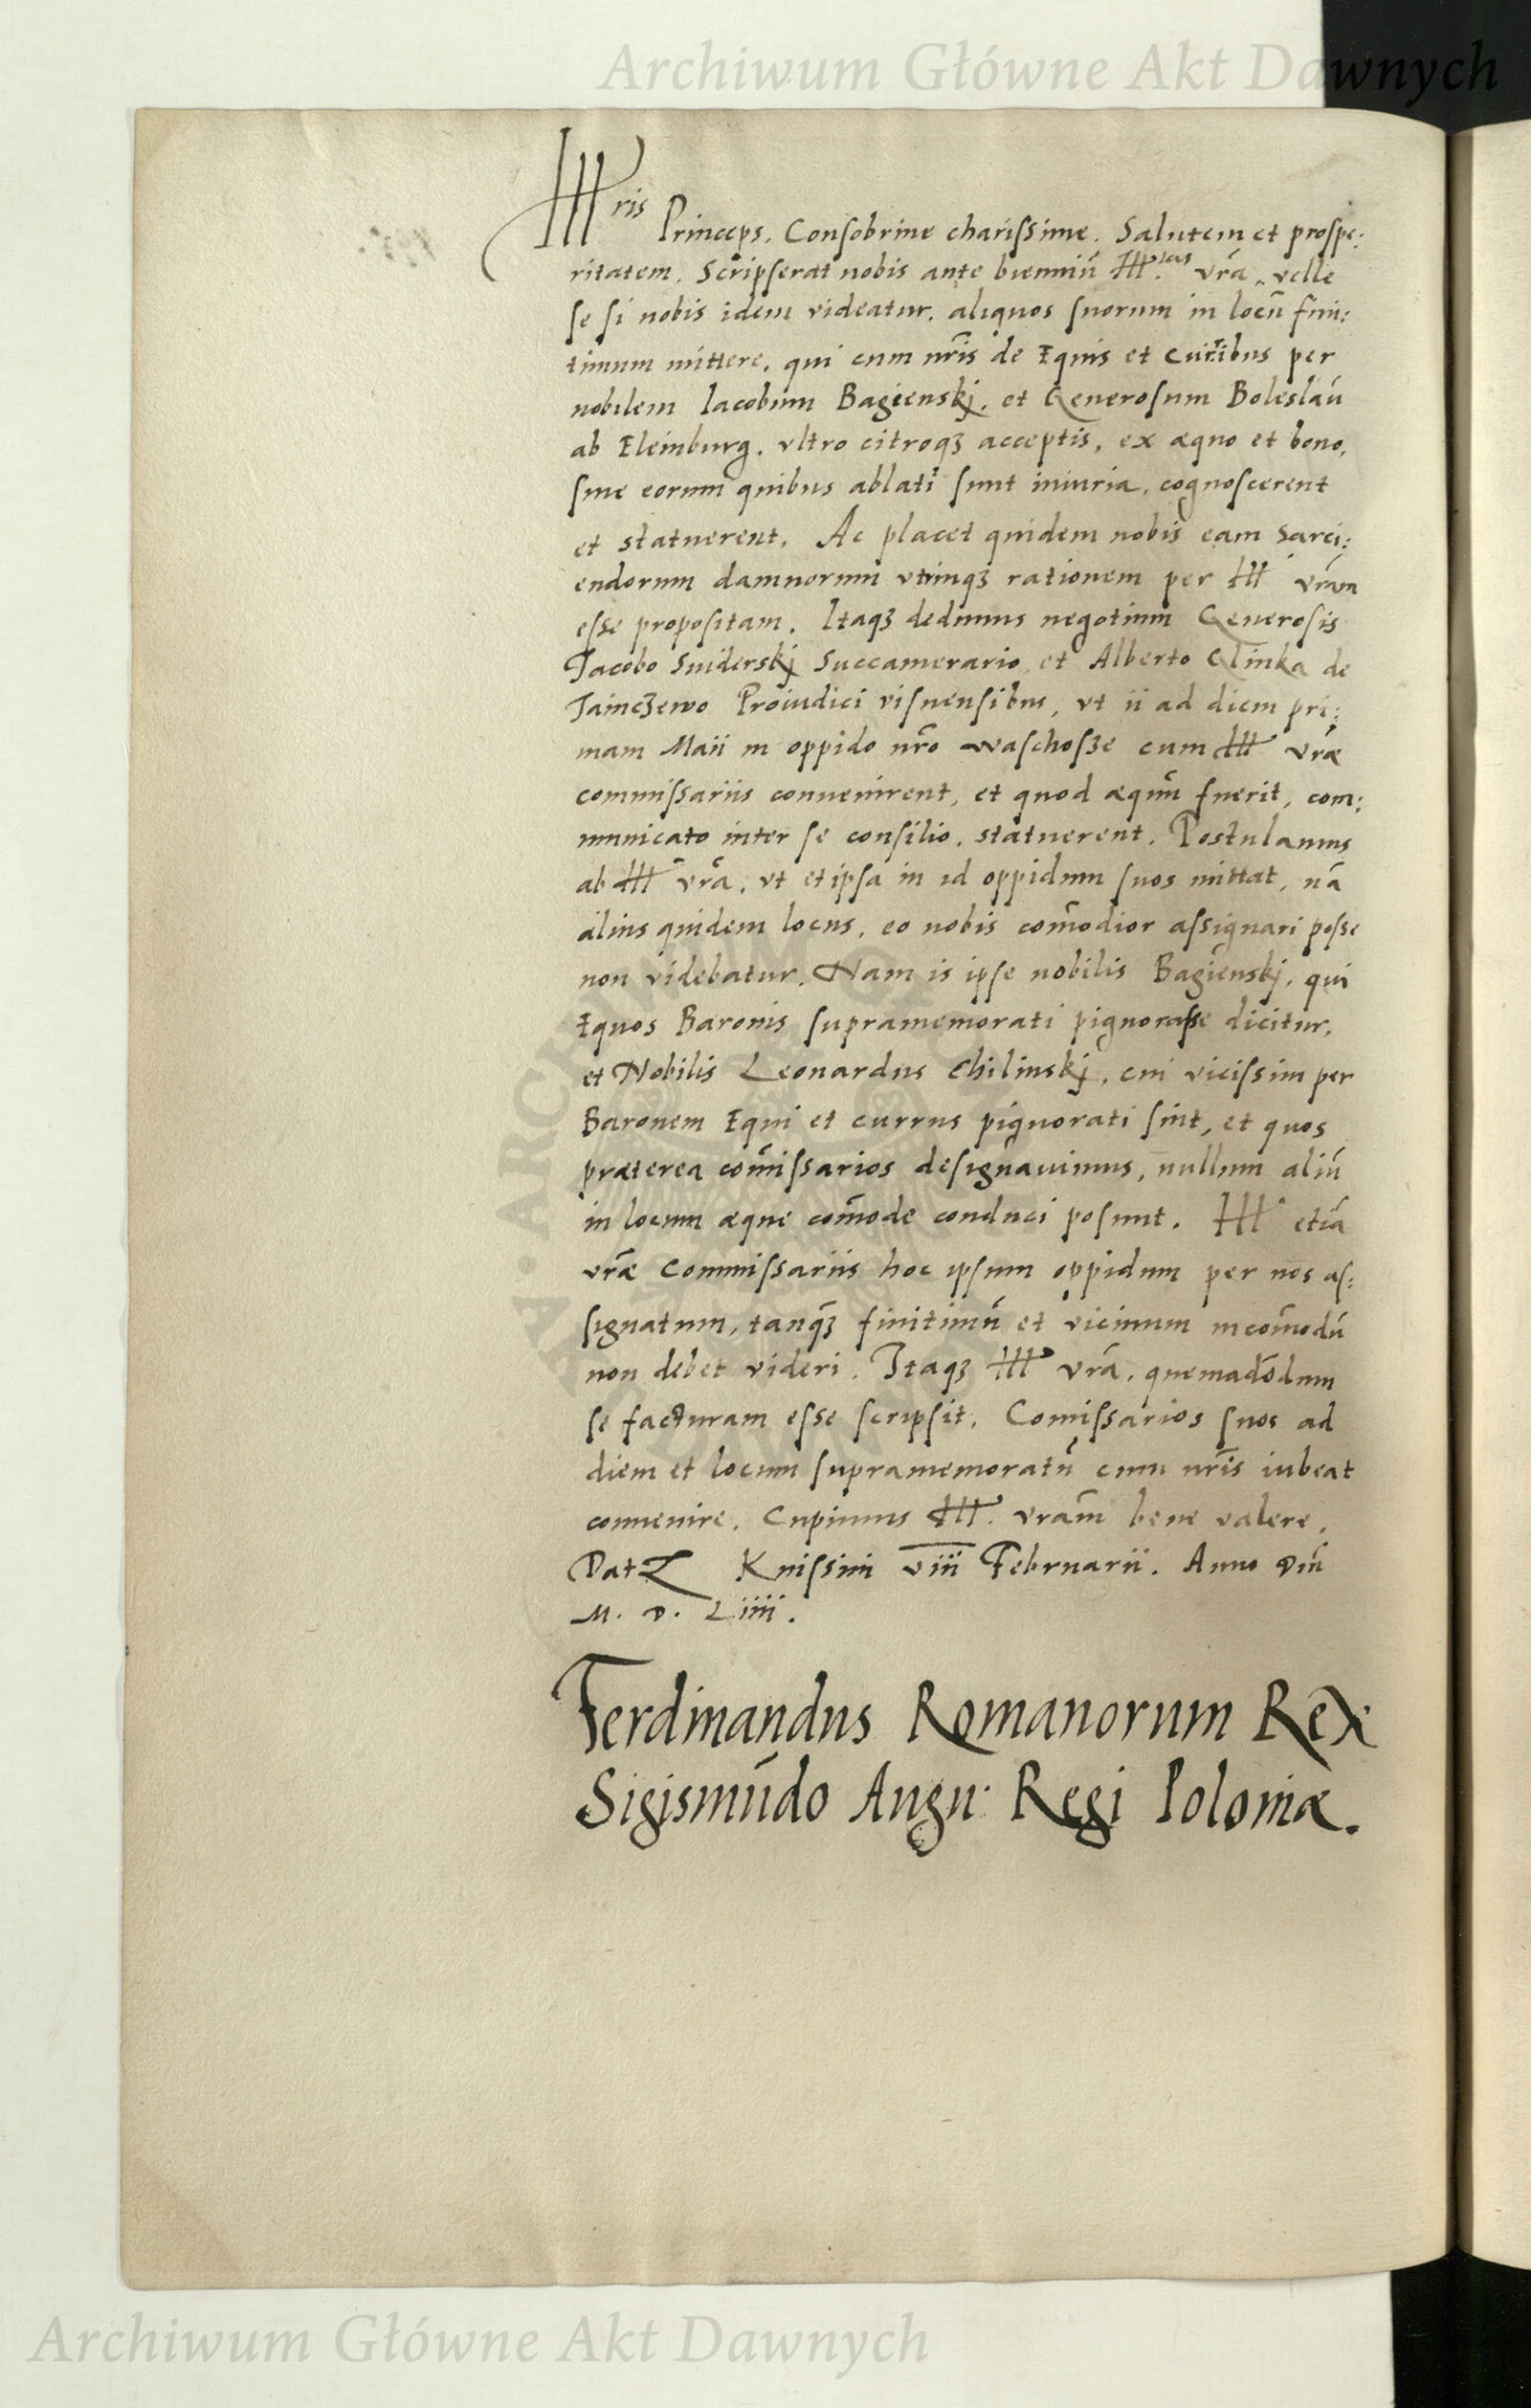 Archiwum Główne Akt Dawnych
Illris Princeps. Consobrine charissime. Salutem et prospe:
ritatem. Scripserat nobis ante bienniũ Ill.tas vr̃a velle
se si nobis idem videatur. aliquos suorum in locũ fini:
timum mittere, qui cum nr̃is de Equis et curribus per
nobilem Iacobum Bagienskj, et Generosum Boleslaũ
ab Eleinburg. vltro citroqȝ acceptis, ex æquo et bono,
sine eorum quibus ablati sunt iniuria, cognoscerent
et statuerent. Ac placet quidem nobis eam sarci:
endorum damnorum vtrinqȝ rationem per Ill vr̃am
esse propositam. Itaqȝ dedimus negotium Generosis
Jacobo Suiderskj Succamerario, et Alberto Glinka de
Jainczewo Proiudici visnensibus, vt ii ad diem pri:
mam Maii in oppido nr̃o waschosze cum Ill vr̃æ
commissariis conuenirent, et quod æquũ fuerit, com:
municato inter se consilio, statuerent. Postulamus
ab Ill vr̃a, vt et ipsa in id oppidum suos mittat, nã
alius quidem locus, eo nobis com̃odior assignari posse
non videbatur. Nam is ipse nobilis Bagienskj, qui
Equos Baronis supramemorati pignorasse dicitur,
et Nobilis Leonardus Chilinskj, cui vicissim per
Baronem Equi et currus pignorati sint, et quos
præterea com̃issarios designauimus, nullum aliũ
in locum æque com̃ode conduci posunt. Ill etiã
vr̃æ Commissariis hoc ipsum oppidum per nos as:
signatum, tanqȝ finitimũ et vicinum incom̃odũ
non debet videri. Itaqȝ Ill vr̃a, quemadõdum
se facturam esse scripsit, Comissarios suos ad
diem et locum supramemoratũ cum nr̃is iubeat
conuenire. Cupimus Ill. vram̃ bene valere.
Dat Knissini viii Februarii. Anno Dni̅
M. D. Liiii.
Ferdinandus Romanorum Rex
Sigismũdo Augu: Regi Poloniæ.
Archiwum Główne Akt Dawnych